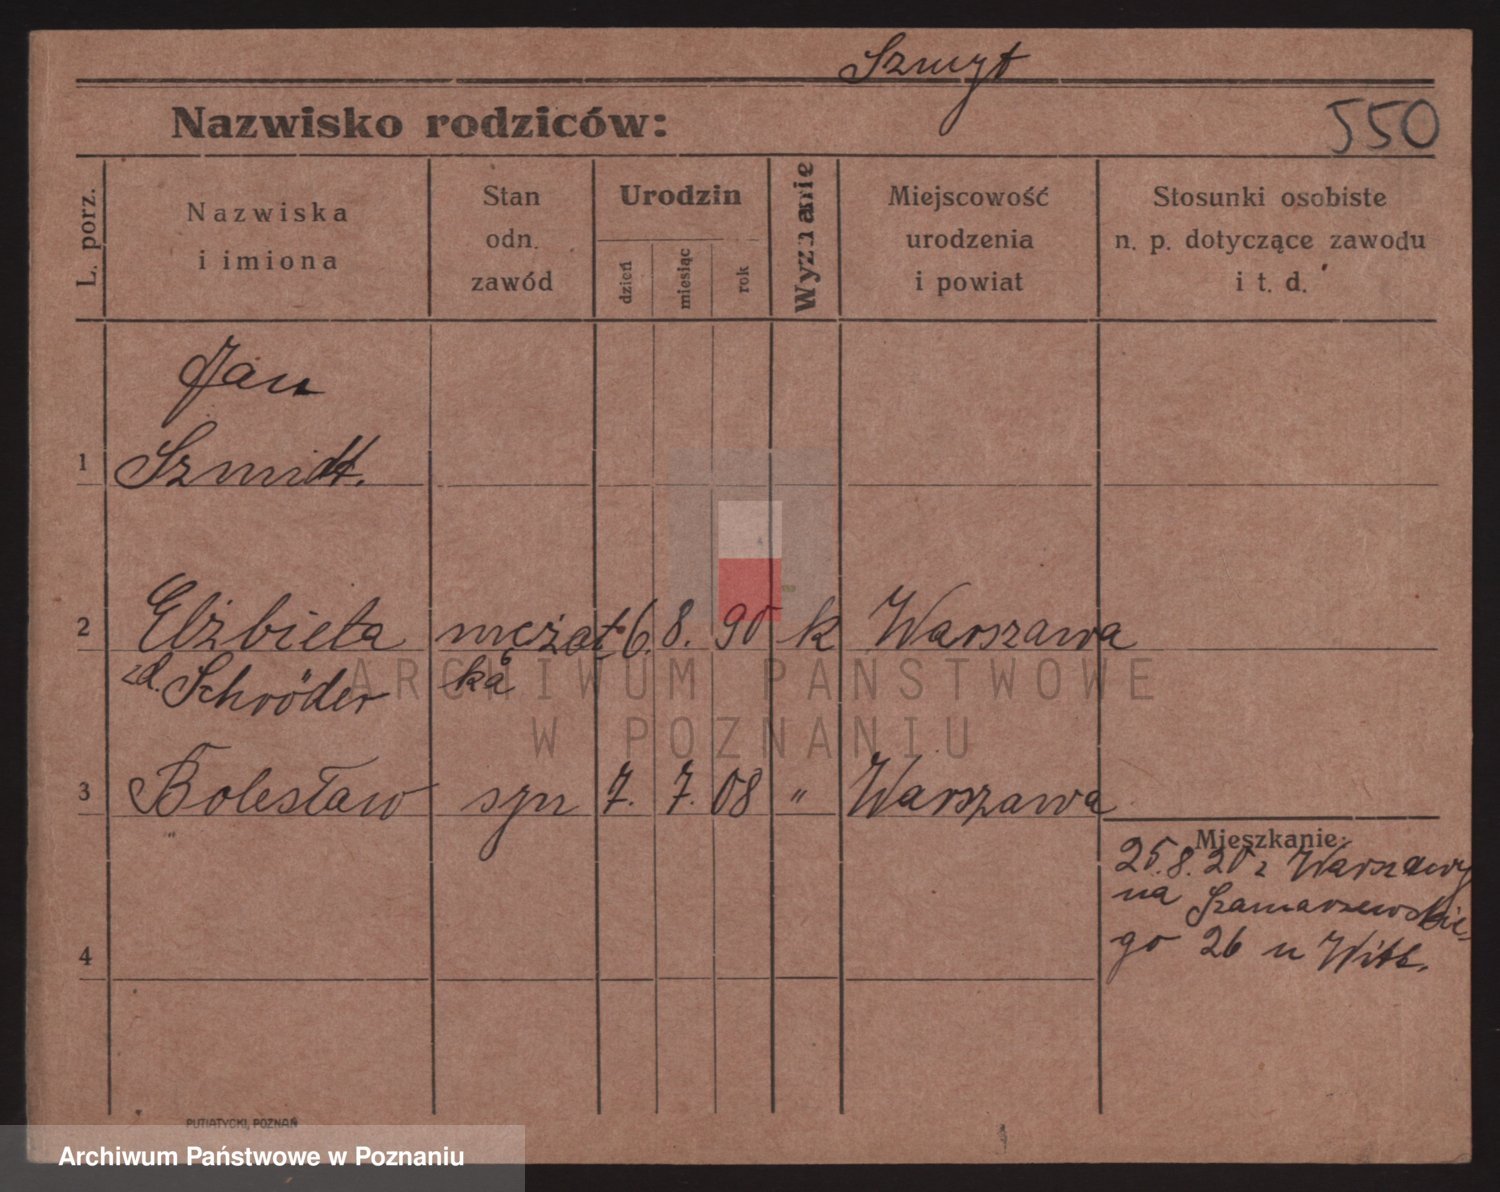 Szmyt
Nazwisko rodziców:
550
L. porz.
Nazwiska
i imiona
Stan
odn.
zawód
Urodzin
dzień
miesiąc
rok
Wyznanie
Miejscowość
urodzenia
i powiat
Stosunki osobiste
n. p. dotyczące zawodu
i t. d.
Jan
1 Szmidt.
2 Elżbieta mężat 6. 8. 90 k Warszawa
zd. Schröder ka
3 Bolesław syn 7. 7. 08 " Warszawa
Mieszkanie:
25.8.20 z Warszawy
na Szamarzewskie-
go 26 u Witt.
4
PUTIATYCKI, POZNAŃ
ARCHIWUM PAŃSTWOWE
W POZNANIU
Archiwum Państwowe w Poznaniu